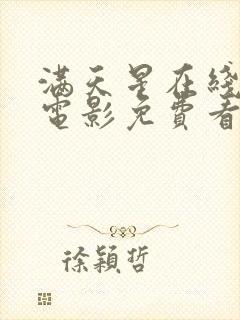 满天星在綫
電影免費看
徐穎哲